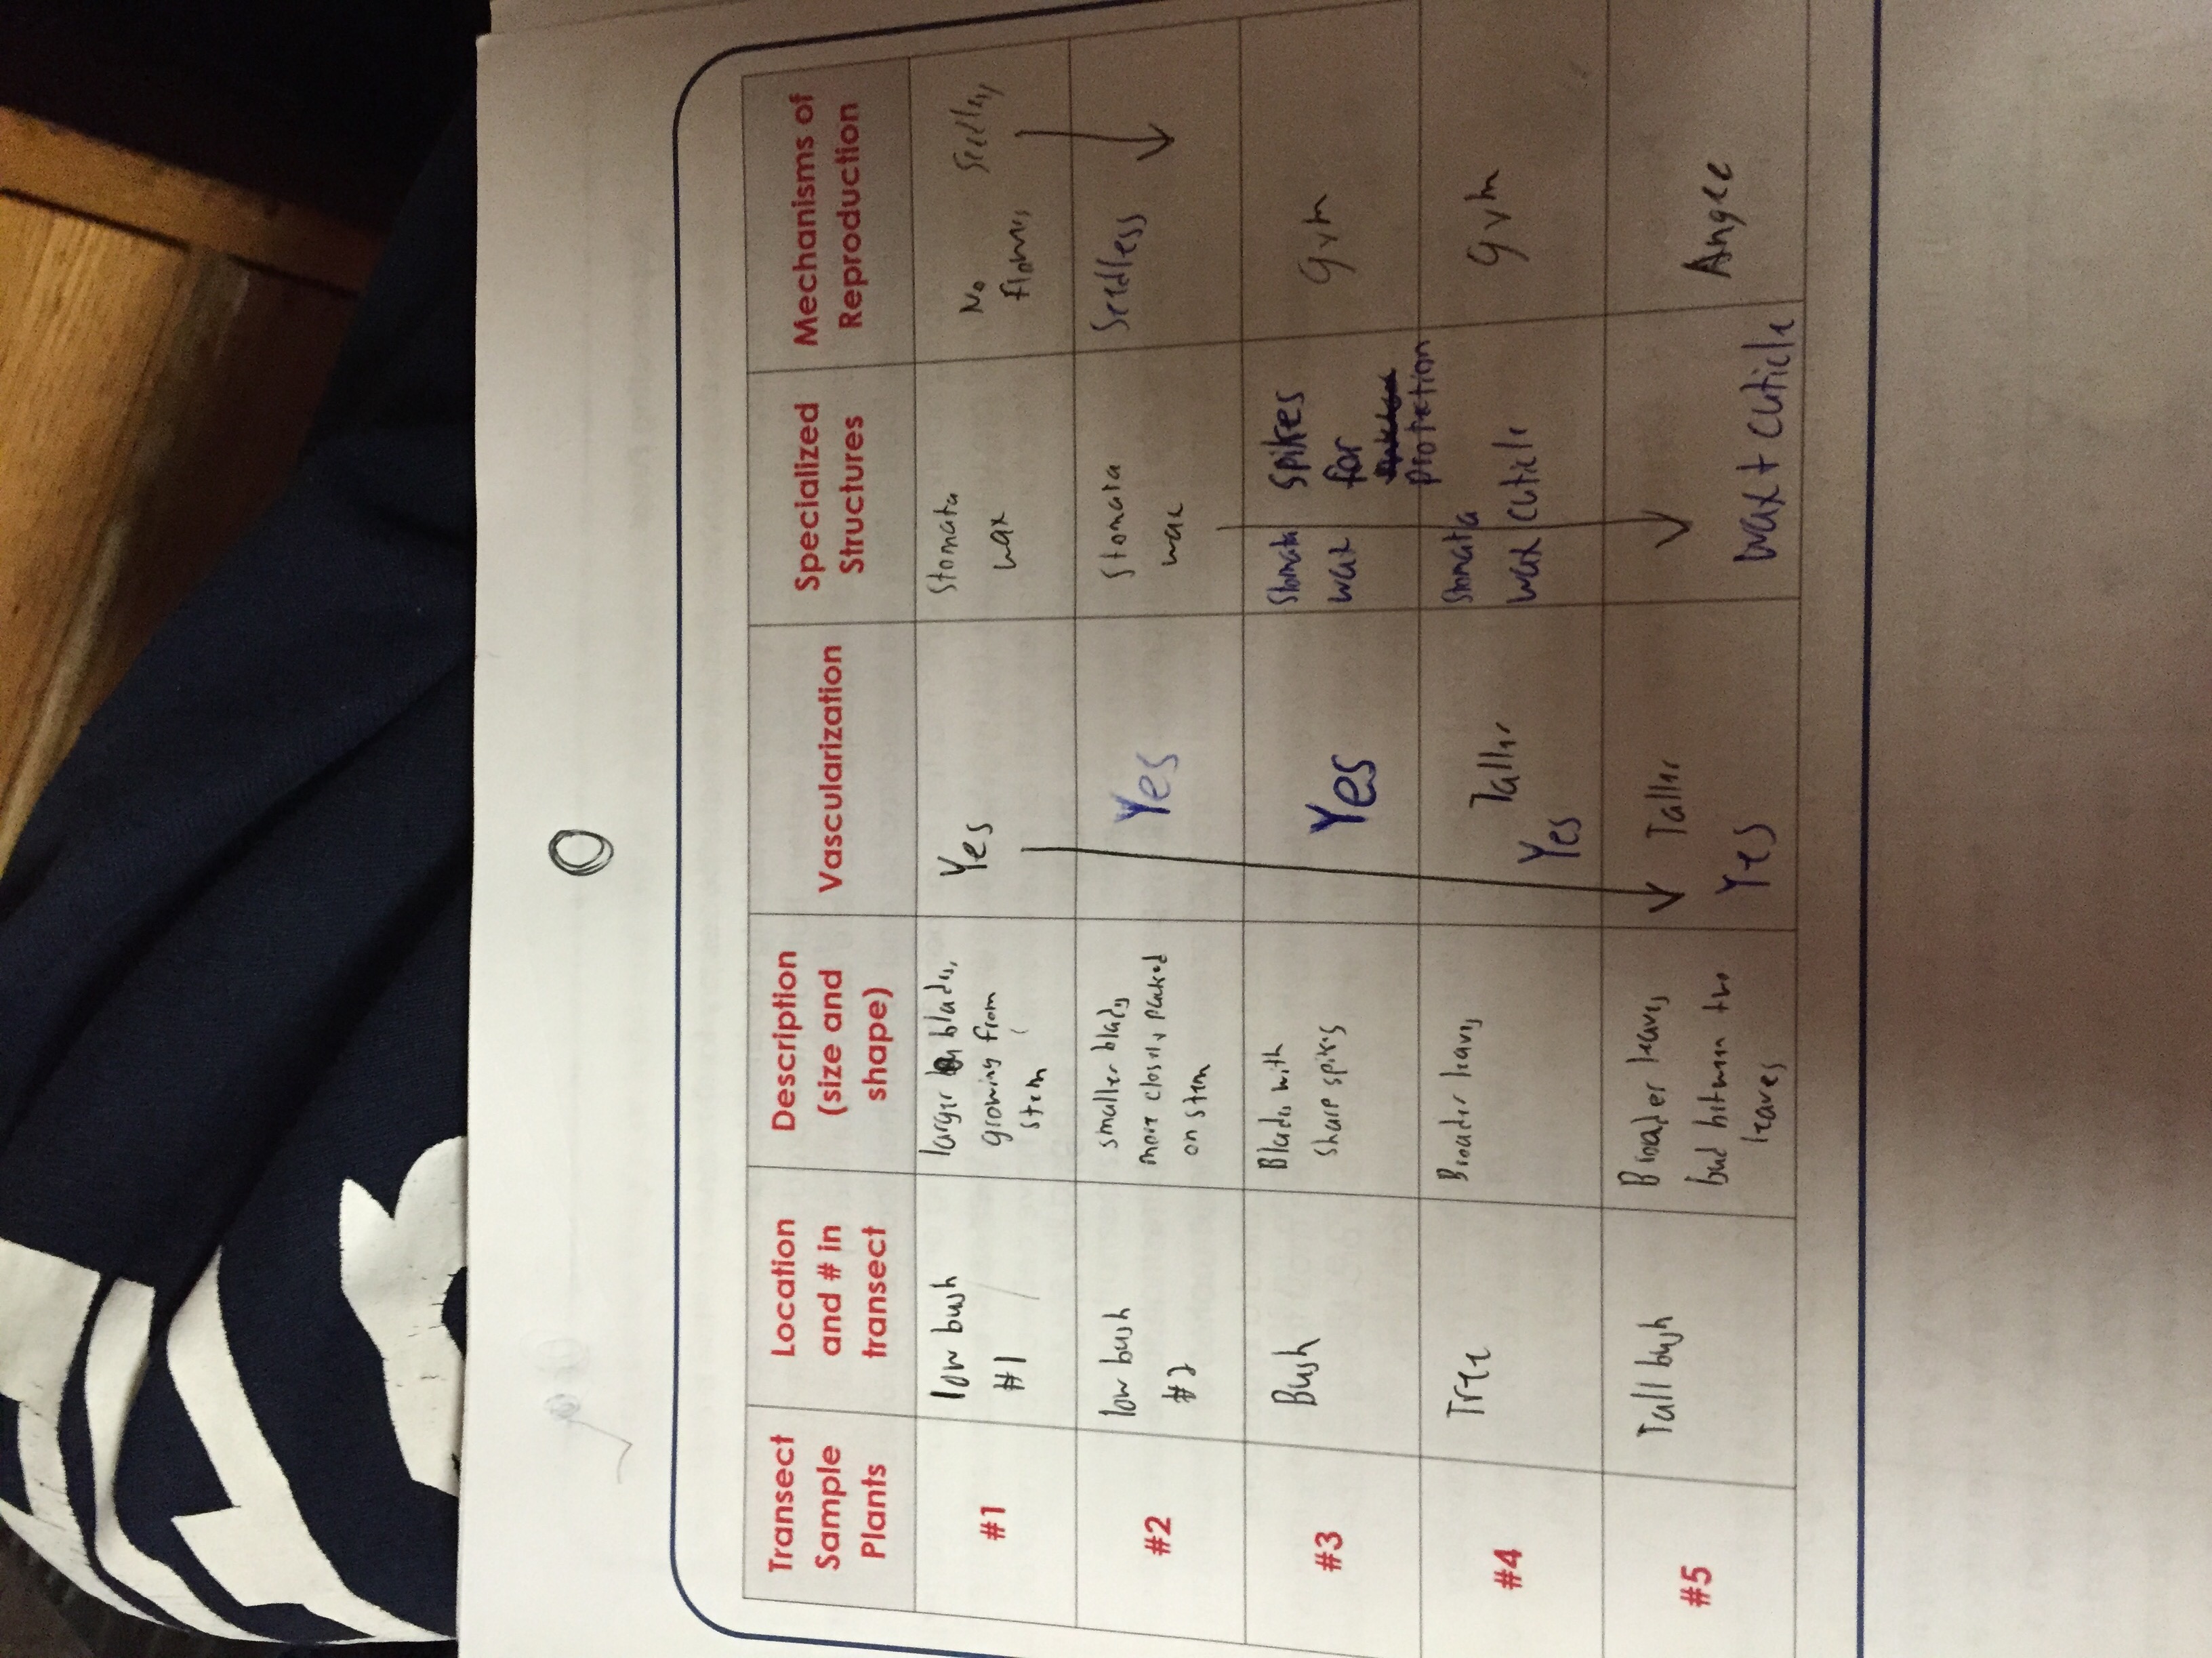 Transect
Sample
Plants
Location
and # in
transect
Description
(size and
shape)
Vascularization
Specialized
Structures
Mechanisms of
Reproduction
#1
low bush
#1
larger blades,
growing from
stem
Yes
Stomata
wax
No
flowers
#2
low bush
#2
smaller blades
more closely packed
on stem
Yes
Stomata
wax
Seedless
#3
Bush
Blades with
sharp spikes
Yes
Stomata
wax
spikes
for
protection
Gym
#4
Tree
Broader leaves
Taller
Yes
Stomata
wax cuticle
Gym
#5
Tall bush
Broader leaves
bud between two
leaves
Taller
Yes
wax + cuticle